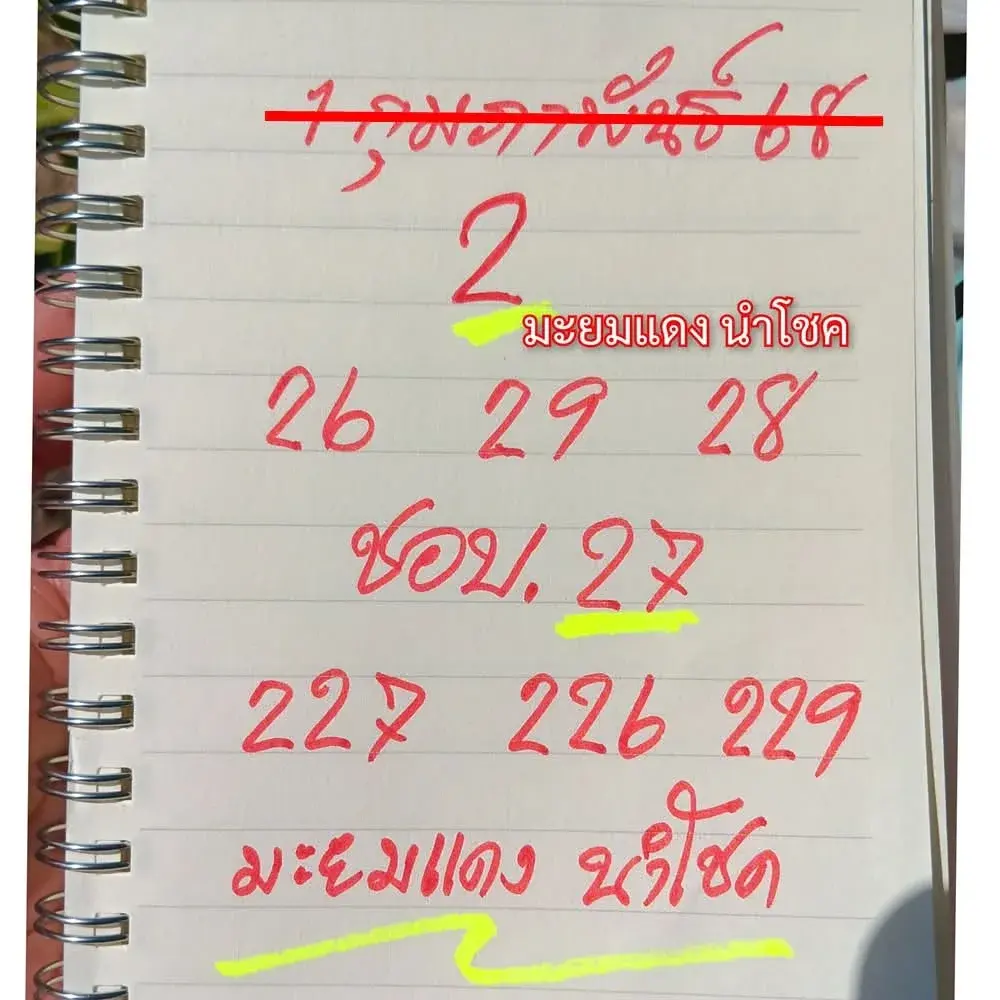 1 กุมภาพันธ์ 68
2
มะยมแดง นำโชค
26 29 28
ชอบ. 27
227 226 229
มะยมแดง นำโชค